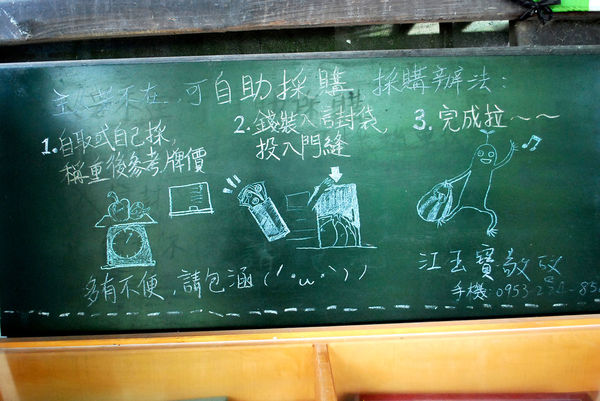 主人若不在,可自助採購,採購辦法:
1.自取或自己採,
稱重後參考牌價
2.錢裝入信封袋,
投入門縫
3.完成拉~~
多有不便,請包涵(´・ω・`))
江玉寶敬啟
手機:0953-234-85